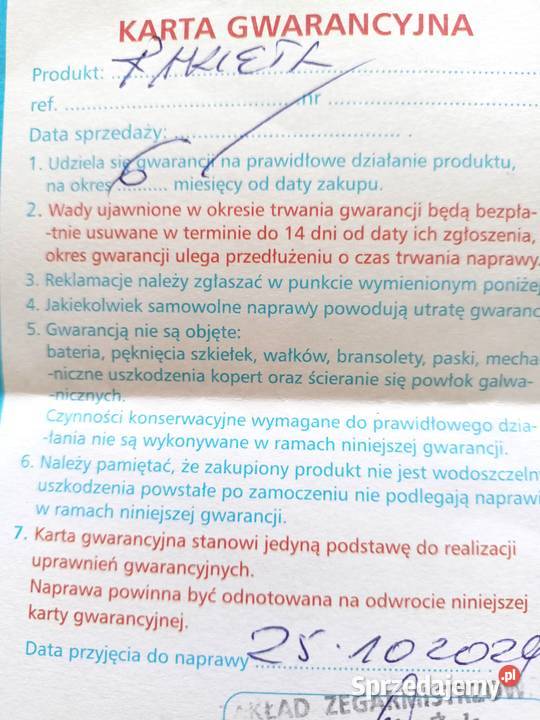 KARTA GWARANCYJNA
Produkt: RAKIETA
ref. nr
Data sprzedaży:
1. Udziela się gwarancji na prawidłowe działanie produktu,
na okres 6 miesięcy od daty zakupu.
2. Wady ujawnione w okresie trwania gwarancji będą bezpła-
-tnie usuwane w terminie do 14 dni od daty ich zgłoszenia,
okres gwarancji ulega przedłużeniu o czas trwania naprawy.
3. Reklamacje należy zgłaszać w punkcie wymienionym poniżej
4. Jakiekolwiek samowolne naprawy powodują utratę gwaranc
5. Gwarancją nie są objęte:
bateria, pęknięcia szkiełek, wałków, bransolety, paski, mecha
-niczne uszkodzenia kopert oraz ścieranie się powłok galwa-
-nicznych.
Czynności konserwacyjne wymagane do prawidłowego dzia-
-łania nie są wykonywane w ramach niniejszej gwarancji.
6. Należy pamiętać, że zakupiony produkt nie jest wodoszczelny
uszkodzenia powstałe po zamoczeniu nie podlegają naprawi
w ramach niniejszej gwarancji.
7. Karta gwarancyjna stanowi jedyną podstawę do realizacji
uprawnień gwarancyjnych.
Naprawa powinna być odnotowana na odwrocie niniejszej
karty gwarancyjnej.
Data przyjęcia do naprawy 25.10 2024
ZAKŁAD ZEGARMISTRZOW
Sprzedajemy.pl